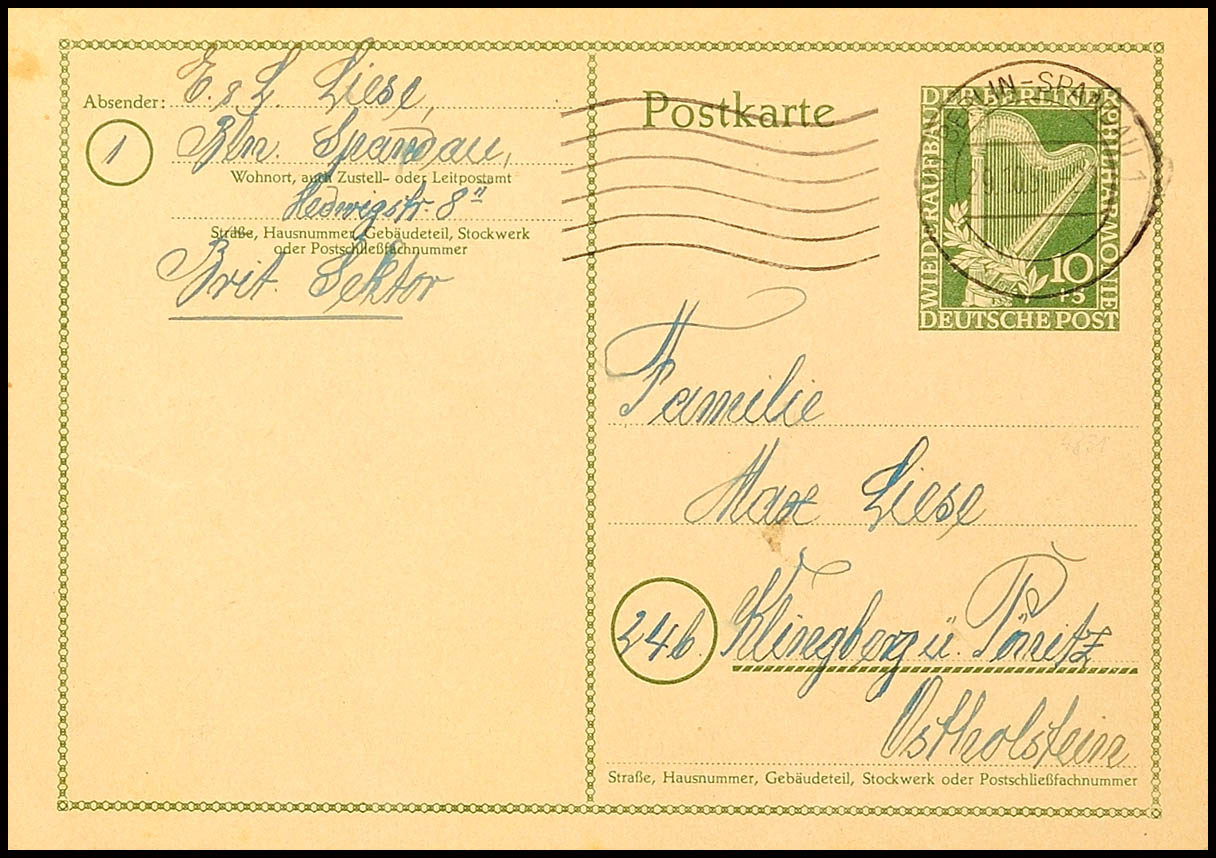 Absender: E. u. L. Liese,
1 Bln. Spandau,
Wohnort, auch Zustell- oder Leitpostamt
Hedwigstr. 8 II
Straße, Hausnummer, Gebäudeteil, Stockwerk
oder Postschließfachnummer
Brit. Sektor
Postkarte
WIEDERAUFBAU DER BERLINER PHILHARMONIE
10
+5
DEUTSCHE POST
BERLIN-SPANDAU 1
Familie
Max Liese
24b Klingberg ü. Pönitz
Ostholstein
Straße, Hausnummer, Gebäudeteil, Stockwerk oder Postschließfachnummer